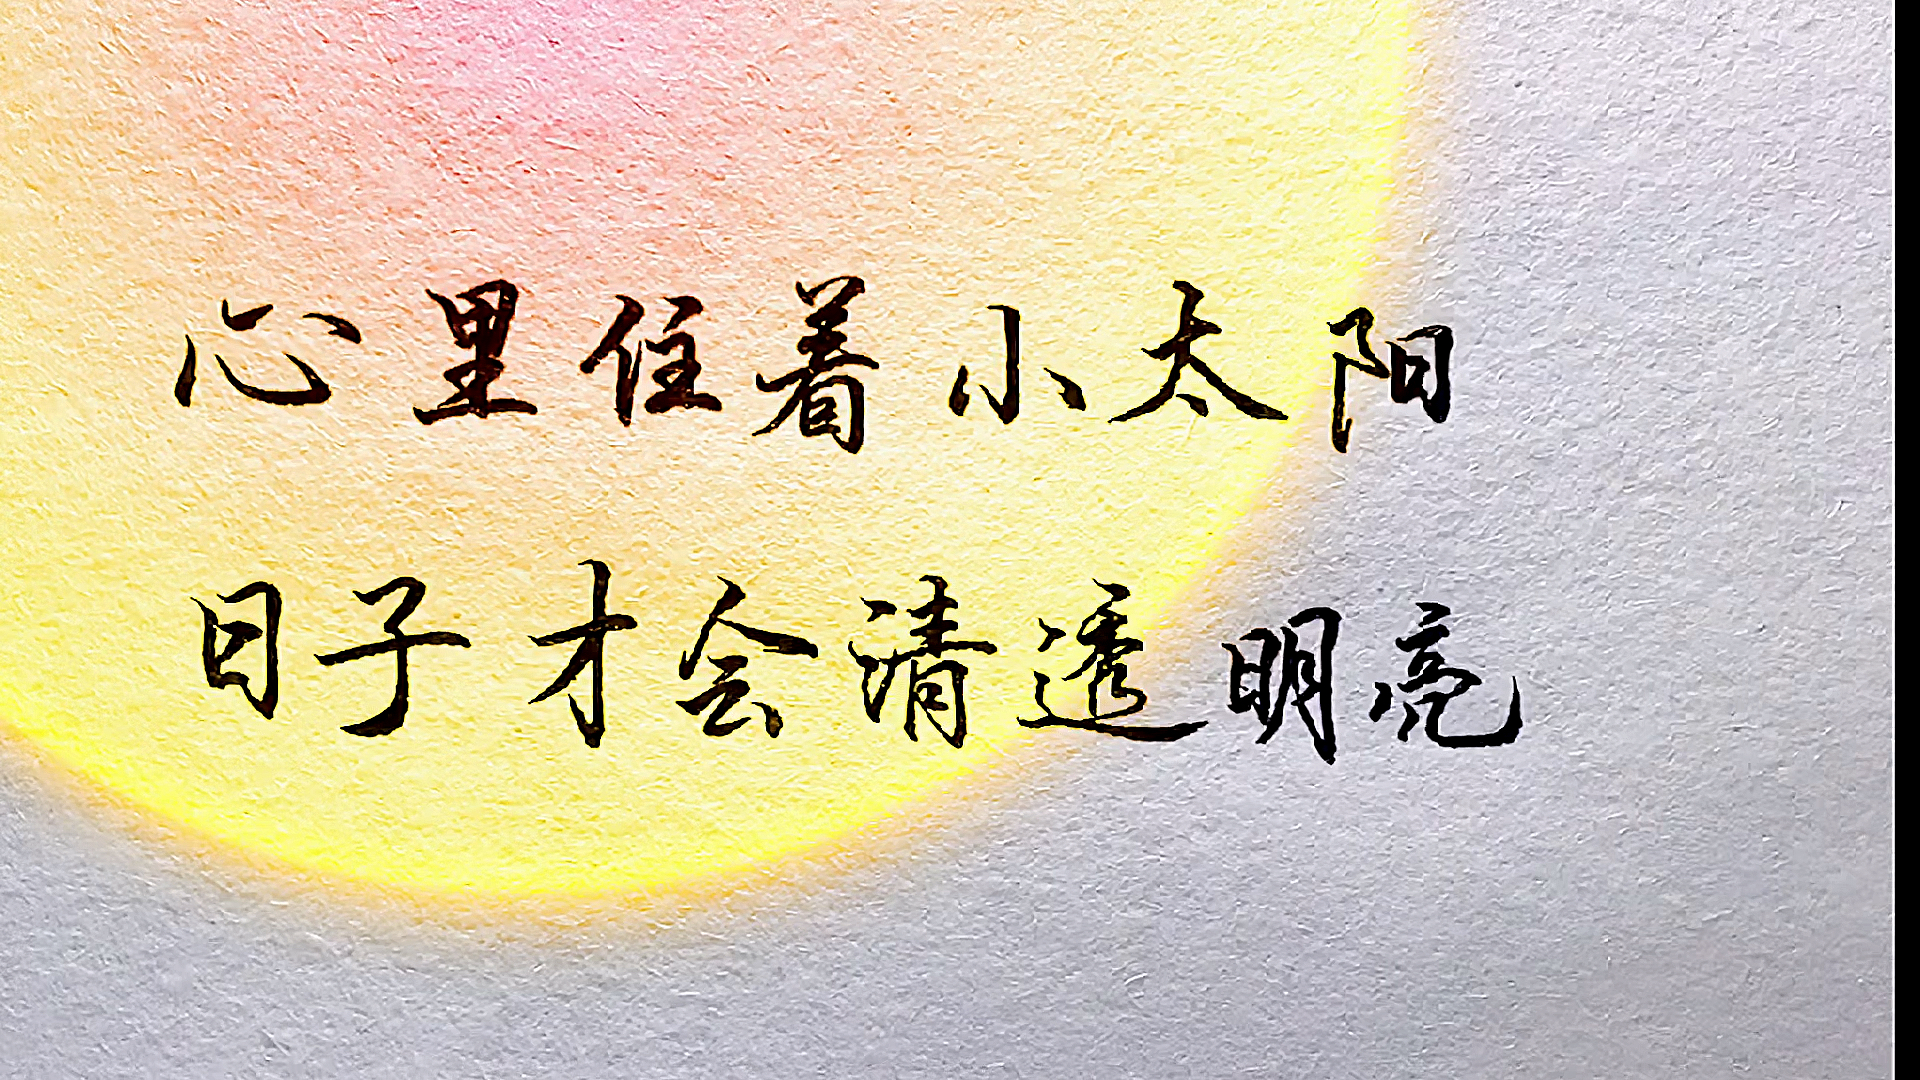 心里住着小太阳
日子才会清透明亮